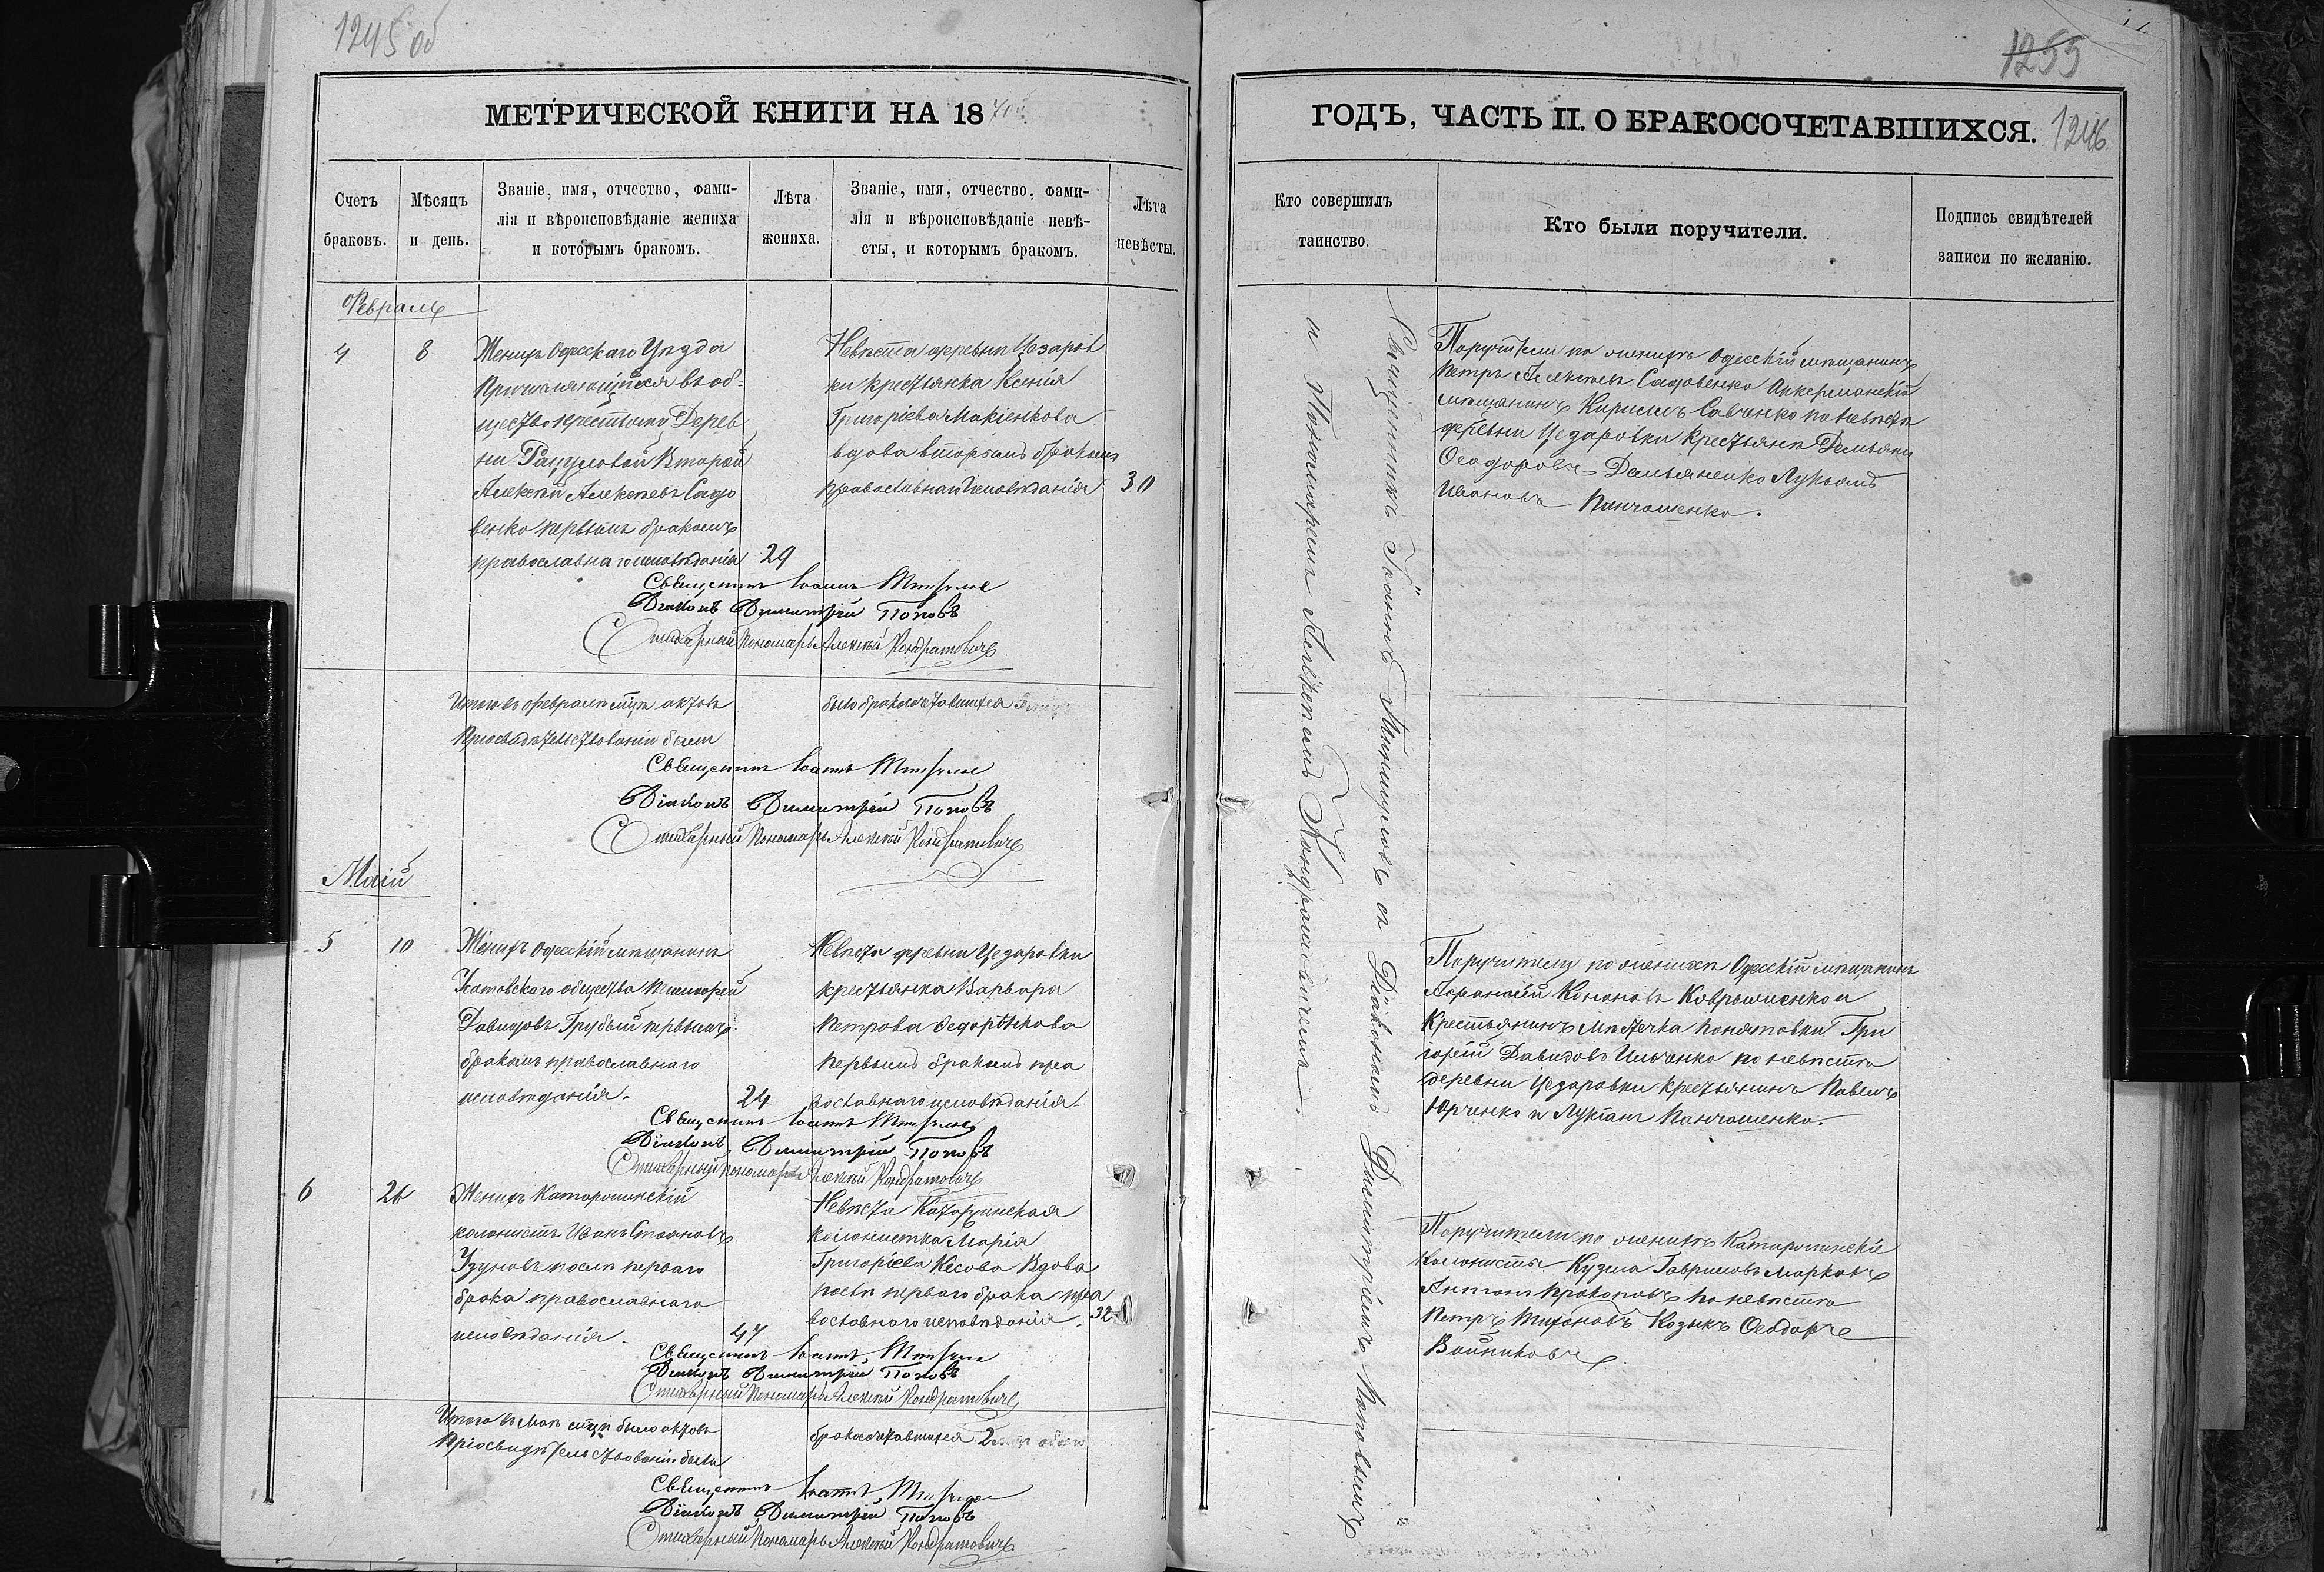 1245 об
МЕТРИЧЕСКОЙ КНИГИ НА 1870й
Счетъ браковъ.
Мѣсяцъ и день.
Званіе, имя, отчество, фами-
лія и вѣроисповѣданіе жениха
и которымъ бракомъ.
Лѣта
жениха.
Званіе, имя, отчество, фами-
лія и вѣроисповѣданіе невѣ-
сты, и которымъ бракомъ.
Лѣта
невѣсты.
Февраль
4
8
Женихъ Одесскаго Уѣзда
въ об-
щество Дерев
ни Второй
Алексѣй Алексѣевъ Садо
венко первымъ бракомъ
православнаго исповѣданія
29
Невѣста деревни Цезаров
ки крестьянка Ксенія
Григоріева Макіенкова
вдова вторымъ бракомъ
православнаго исповѣданія
30
Священникъ Іоаннъ
Діаконъ Димитрій Поповъ
Стихарный Пономарь Алексѣй Кондратовичъ
Итого въ февралѣ мцѣ актовъ
было бракосочетавшихся
При освидѣтельствованіи были
Священникъ Іоаннъ
Діаконъ Димитрій Поповъ
Стихарный Пономарь Алексѣй Кондратовичъ
Маій
5
10
Женихъ Одесскій мѣщанинъ
Усатовскаго общества
Давидовъ Грубый первымъ
бракомъ православнаго
исповѣданія.
24
Невѣста деревни Цезаровки
крестьянка Варвара
Петрова
первымъ бракомъ пра
вославнаго исповѣданія.
Священникъ Іоаннъ
Діаконъ Димитрій Поповъ
Стихарный пономарь Алексѣй Кондратовичъ
6
26
Женихъ Катаржинскій
колонистъ Иванъ Стояновъ
Узуновъ послѣ перваго
брака православнаго
исповѣданія.
47
Невѣста Катаржинская
колонистка Марія
Григоріева Кесова Вдова
послѣ перваго брака пра
вославнаго исповѣданія.
32
Священникъ Іоаннъ
Діаконъ Димитрій Поповъ
Стихарный Пономарь Алексѣй Кондратовичъ
Итого въ Маѣ мцѣ было актовъ
бракосочетавшихся 2
При освидѣтельствованіи были
Священникъ Іоаннъ
Діаконъ Димитрій Поповъ
Стихарный Пономарь Алексѣй Кондратовичъ
1255
ГОДЪ, ЧАСТЬ II. О БРАКОСОЧЕТАВШИХСЯ.
1246
Кто совершилъ
таинство.
Кто были поручители.
Подпись свидѣтелей
записи по желанію.
Священникъ Іоаннъ съ Діакономъ Димитріемъ Поповымъ
и Пономаремъ Алексѣемъ Кондратовичемъ.
Поручители по женихѣ Одесскій мѣщанинъ
Петръ Алексѣевъ Садовенко Аккерманскій
мѣщанинъ Кирилъ Савченко по невѣстѣ
деревни Цезаровки крестьяне Демьянъ
Ѳеодоровъ Демьяненко Лукьянъ
Ивановъ Панчошенко.
Поручители по женихѣ Одесскій мѣщанинъ
Афанасій Кононовъ и
Крестьянинъ Мѣстечка Понятовки Гри
горій Давидовъ Ильченко по невѣстѣ
деревни Цезаровки крестьянинъ Павелъ
Юрченко и Лукіанъ Панчошенко.
Поручители по женихѣ Катаржинскіе
колонисты Кузма Гавриловъ Марковъ
Антонъ Прокоповъ по невѣстѣ
Петръ Тифоновъ Козыкъ Ѳеодоръ
Войниковъ.